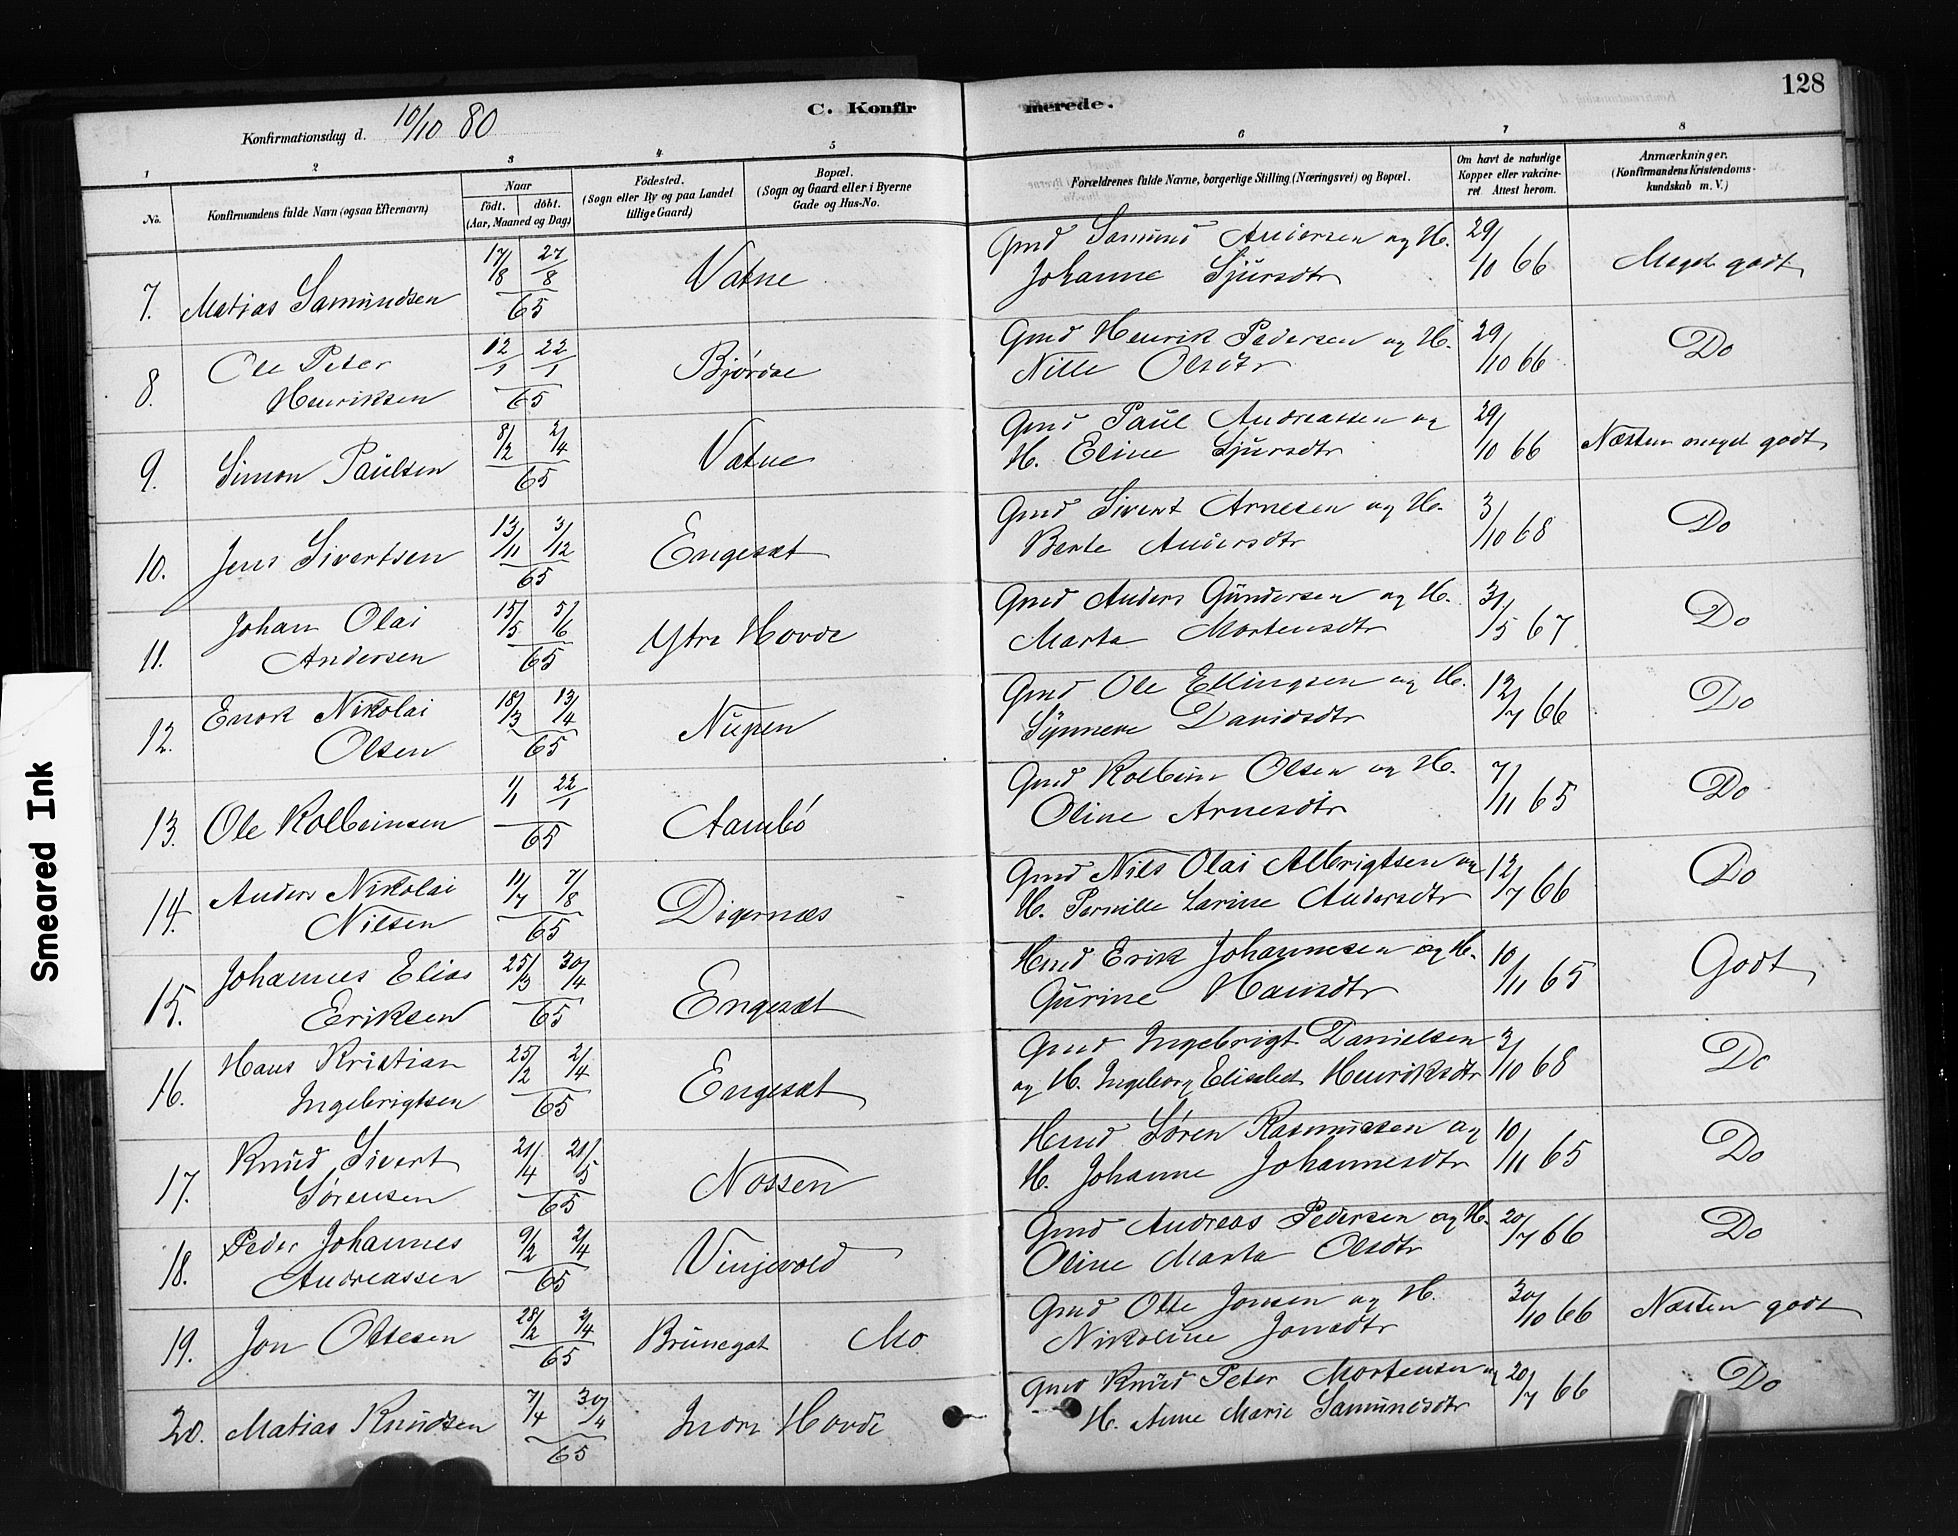 128
Konfirmationsdag d. 10/10 80
C. Konfirmerede.
1 2 3 4 5 6 7 8
No.
Konfirmandens fulde Navn (ogsaa Efternavn)
Naar
födt. döbt.
(Aar, Maaned og Dag)
Födested.
(Sogn eller By og paa Landet
tillige Gaard)
Bopæl.
(Sogn og Gaard eller i Byerne
Gade og Hus-No.
Forældrenes fulde Navne, borgerlige Stilling (Næringsvei) og Bopæl.
Om havt de naturlige
Kopper eller vakcine-
ret. Attest herom.
Anmærkninger.
(Konfirmandens Kristendoms-
kundskab m. V.)
7. Matias Samundsen 17/8 27/8 65 Vatne
Gmd Samund Andersen og H.
Johanne Sjursdtr
29/10 66 Meget godt
8. Ole Peter
Henriksen 12/1 22/1 65 Bjørdal
Gmd Henrik Pedersen og H.
Nille Olsdtr
29/10 66 Do
9. Simon Paulsen 8/2 2/4 65 Vatne
Gmd Paul Andreassen og
H. Eline Sjursdtr
29/10 66 Næsten meget godt
10. Jens Sivertsen 13/11 3/12 65 Engesæt
Gmd Sivert Arnesen og H.
Berte Andersdtr
3/10 68 Do
11. Johan Olai
Andersen 15/5 5/6 65 Ytre Hovde
Gmd Anders Gundersen og H.
Marta Mortensdtr
31/5 67 Do
12. Enok Nikolai
Olsen 18/3 13/4 65 Nupen
Gmd Ole Ellingsen og H.
Synneve Davidsdtr
12/7 66 Do
13. Ole Kolbeinsen 1/1 22/1 65 Aambø
Gmd Kolbein Olsen og H.
Oline Arnesdtr
7/11 65 Do
14. Anders Nikolai
Nilsen 11/7 7/8 65 Digernæs
Gmd Nils Olai Albrigtsen og
H. Pernille Larine Andersdtr
12/7 66 Do
15. Johannes Elias
Eriksen 25/3 30/4 65 Engesæt
Hmd Erik Johannesen og H.
Gurine Hansdtr
10/11 65 Godt
16. Hans Kristian
Ingebrigtsen 25/2 2/4 65 Engesæt
Gmd Ingebrigt Danielsen
og H. Ingeborg Elisabet Henriksdtr
3/10 68 Do
17. Knud Sivert
Sørensen 21/4 21/5 65 Nossen
Hmd Søren Rasmussen og
H. Johanne Johannesdtr
10/11 65 Do
18. Peder Johannes
Andreassen 9/2 2/4 65 Vinjevold
Gmd Andreas Pedersen og H.
Oline Marta Olsdtr
20/7 66 Do
19. Jon Ottesen 28/2 2/4 65 Brunegot Mo
Gmd Otte Jonsen og H.
Nikoline Jonsdtr
30/10 66 Næsten godt
20. Matias Knudsen 7/4 30/4 65 Indre Hovde
Gmd Knud Peter Mortensen og
H. Anne Marie Samundsdtr
20/7 66 Do
Smeared Ink